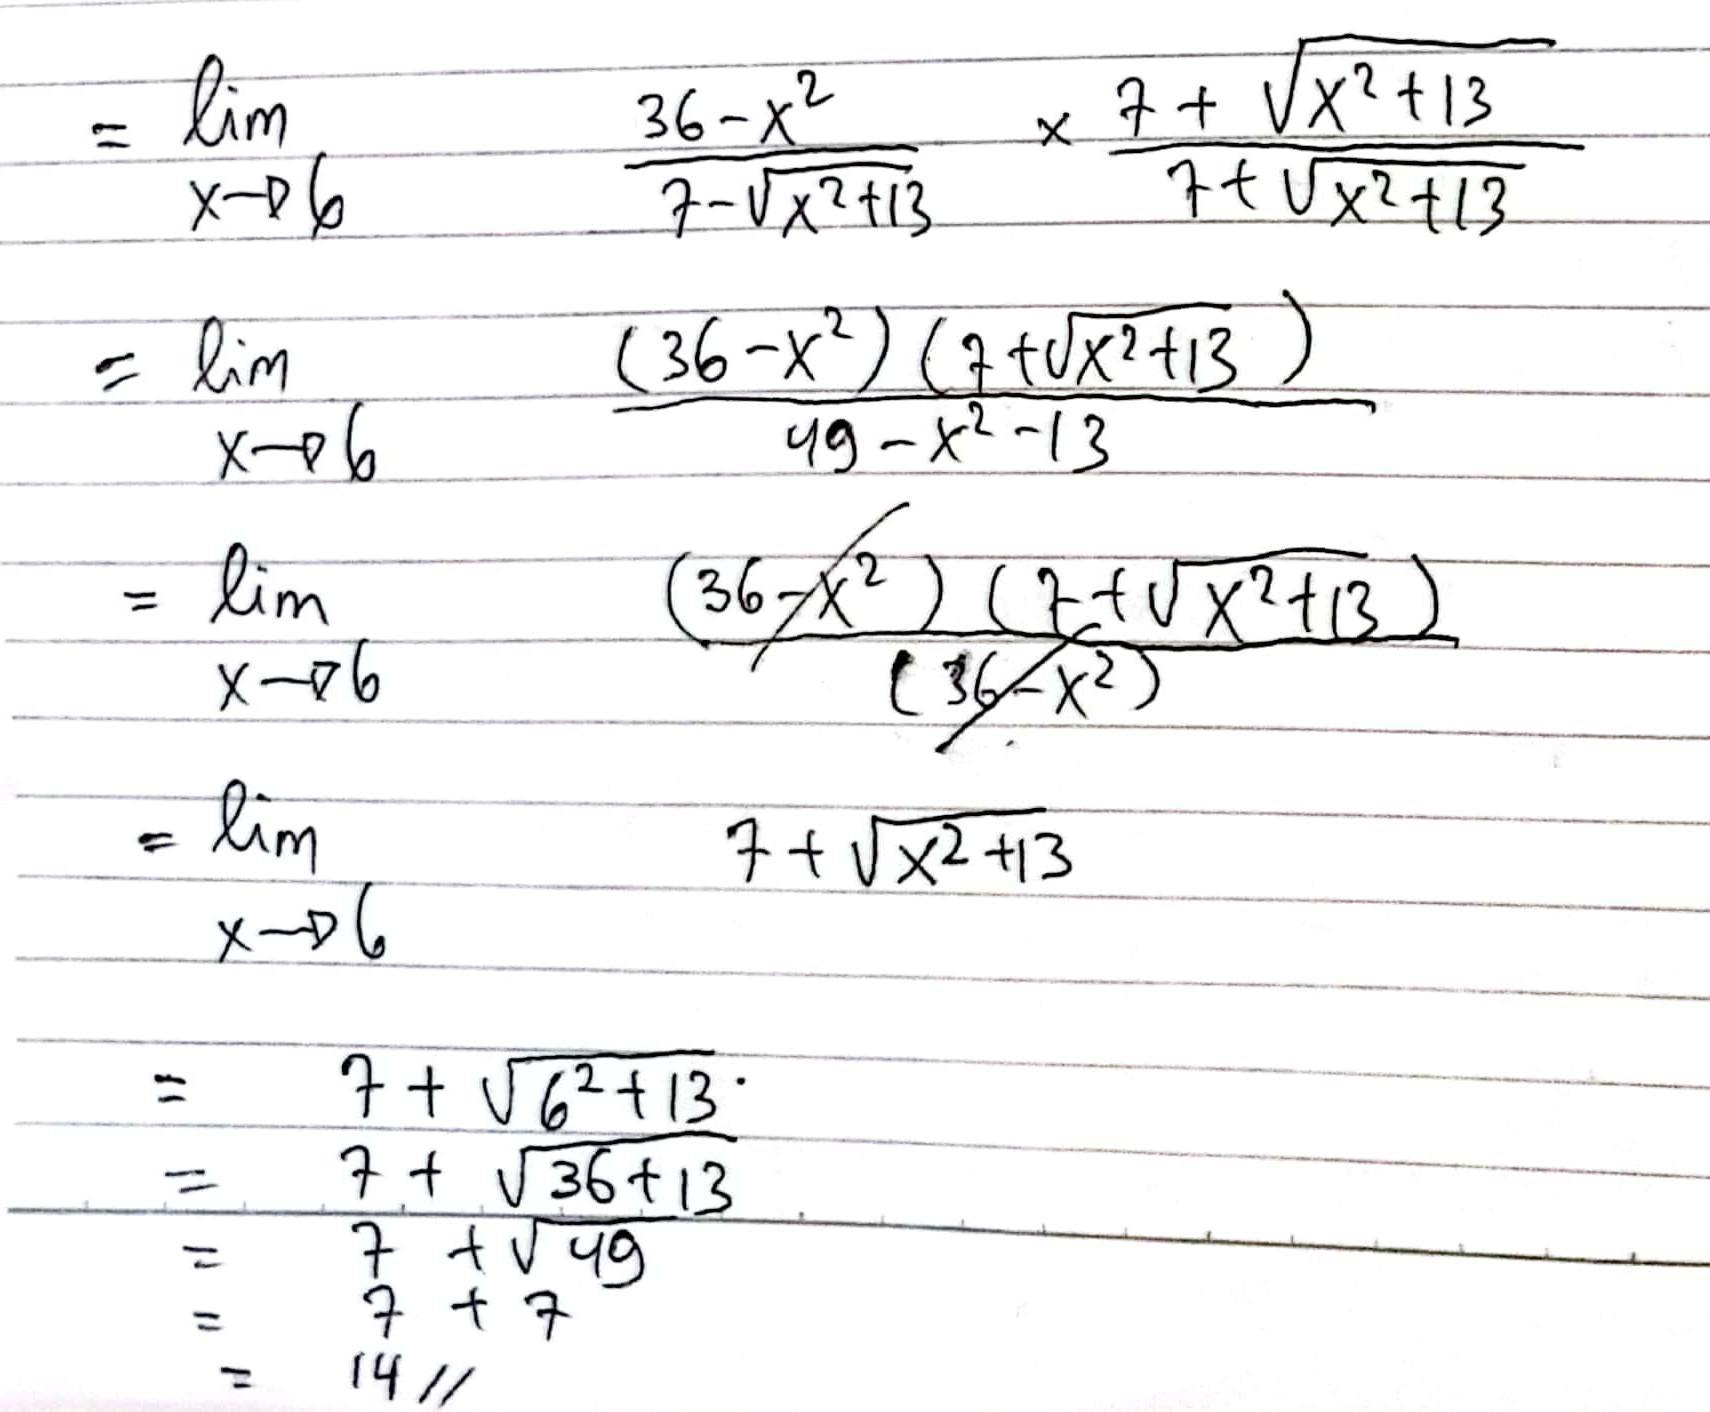 = lim x→6 (36-x²)/(7-√(x²+13)) × (7+√(x²+13))/(7+√(x²+13))
= lim x→6 ((36-x²)(7+√(x²+13)))/(49-x²-13)
= lim x→6 ((36-x²)(7+√(x²+13)))/((36-x²))
= lim x→6 7+√(x²+13)
= 7+√(6²+13)
= 7+√(36+13)
= 7+√49
= 7+7
= 14 //